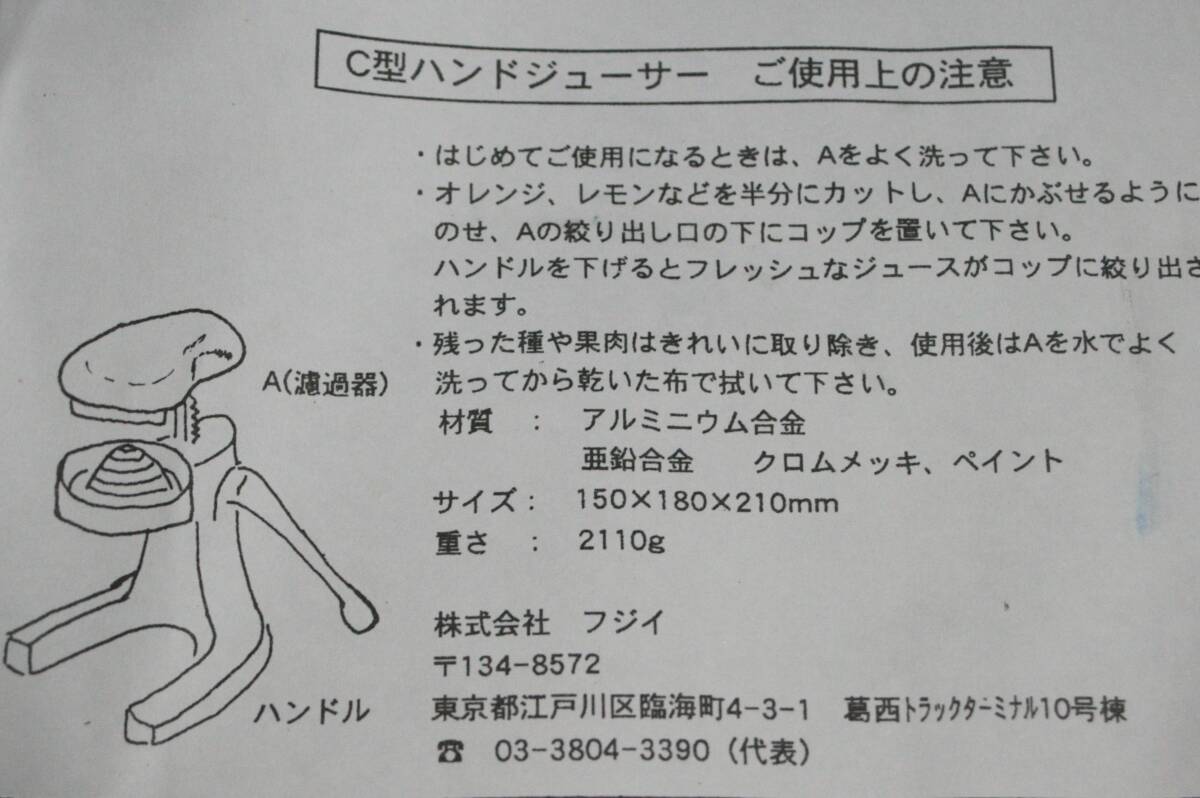 C型ハンドジューサー　ご使用上の注意
・はじめてご使用になるときは、Aをよく洗って下さい。
・オレンジ、レモンなどを半分にカットし、Aにかぶせるように
のせ、Aの絞り出し口の下にコップを置いて下さい。
ハンドルを下げるとフレッシュなジュースがコップに絞り出さ
れます。
・残った種や果肉はきれいに取り除き、使用後はAを水でよく
洗ってから乾いた布で拭いて下さい。
A(濾過器)
材質　：　アルミニウム合金
亜鉛合金　クロムメッキ、ペイント
サイズ：　150×180×210mm
重さ　：　2110g
株式会社　フジイ
〒134-8572
ハンドル
東京都江戸川区臨海町4-3-1　葛西ﾄﾗｯｸﾀｰﾐﾅﾙ10号棟
☎　03-3804-3390（代表）